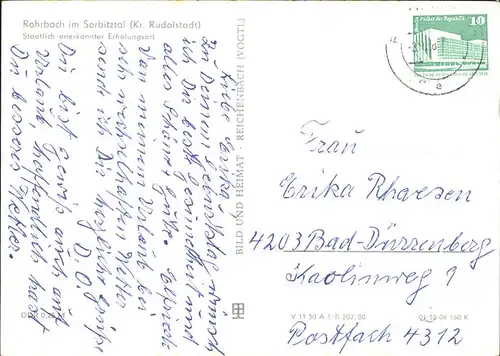 Rohrbach im Sorbitztal (Kr. Rudolstadt)
Staatlich anerkannter Erholungsort
Liebe Erika!
Zu Deinem wünsch
ich Dir best Gesundheit und
alles Schöne + Gute.
Von meinem Urlaub bei
sehr wechselhaften Wetter
send ich Dir herzliche Grüße
D. O.
Du bist gewiß auch auf
Urlaub, hoffendlich hast
Du besseres Wetter.
BILD UND HEIMAT · REICHENBACH (VOGTL)
Palast der Republik
10
Frau
Erika Rhaesen
4203 Bad-Dürrenberg
Kaolinweg 9
Postfach 4312
V 11 50 A 1/B 207/80
01 10 06 160 K